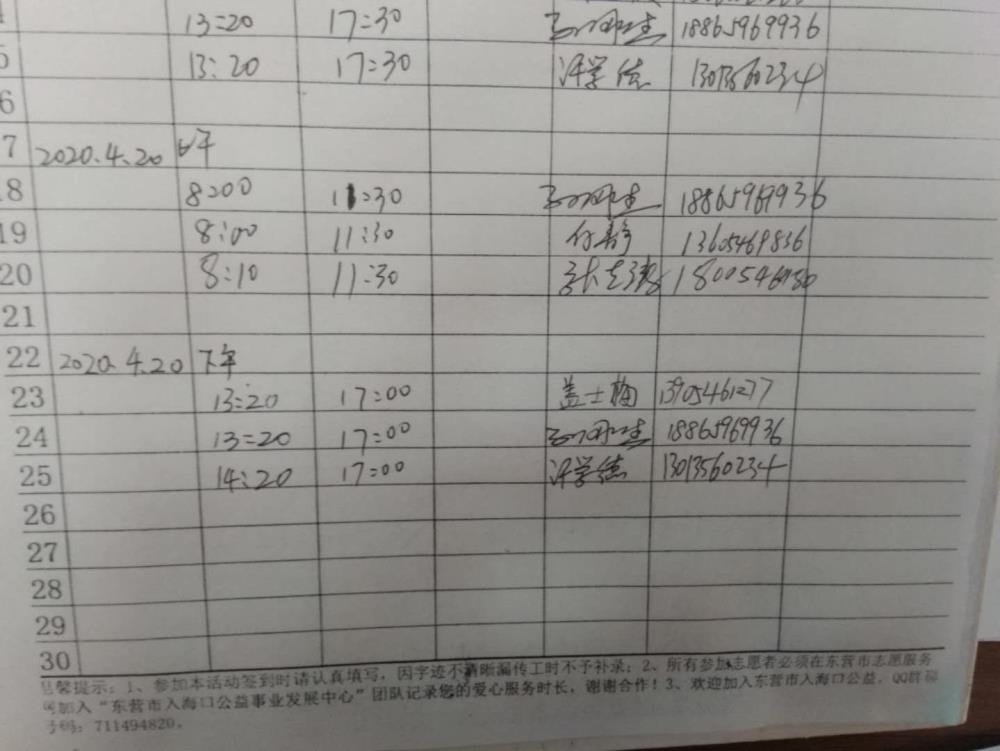 13:20 17:30 18865969936
5 13:20 17:30 许学德 13013560234
6
7 2020.4.20 上午
18 8:00 11:30 18865969936
19 8:00 11:30 付静 13605469836
20 8:10 11:30
21
22 2020.4.20 下午
23 13:20 17:00 盖士梅 13905461277
24 13:20 17:00 18865969936
25 14:20 17:00 许学德 13013560234
26
27
28
29
30
温馨提示:1、参加本活动签到时请认真填写,因字迹不清晰漏传工时不予补录;2、所有参加志愿者必须在东营市志愿服务
加入“东营市入海口公益事业发展中心”团队记录您的爱心服务时长,谢谢合作!3、欢迎加入东营市入海口公益,QQ群
号码:711494820。